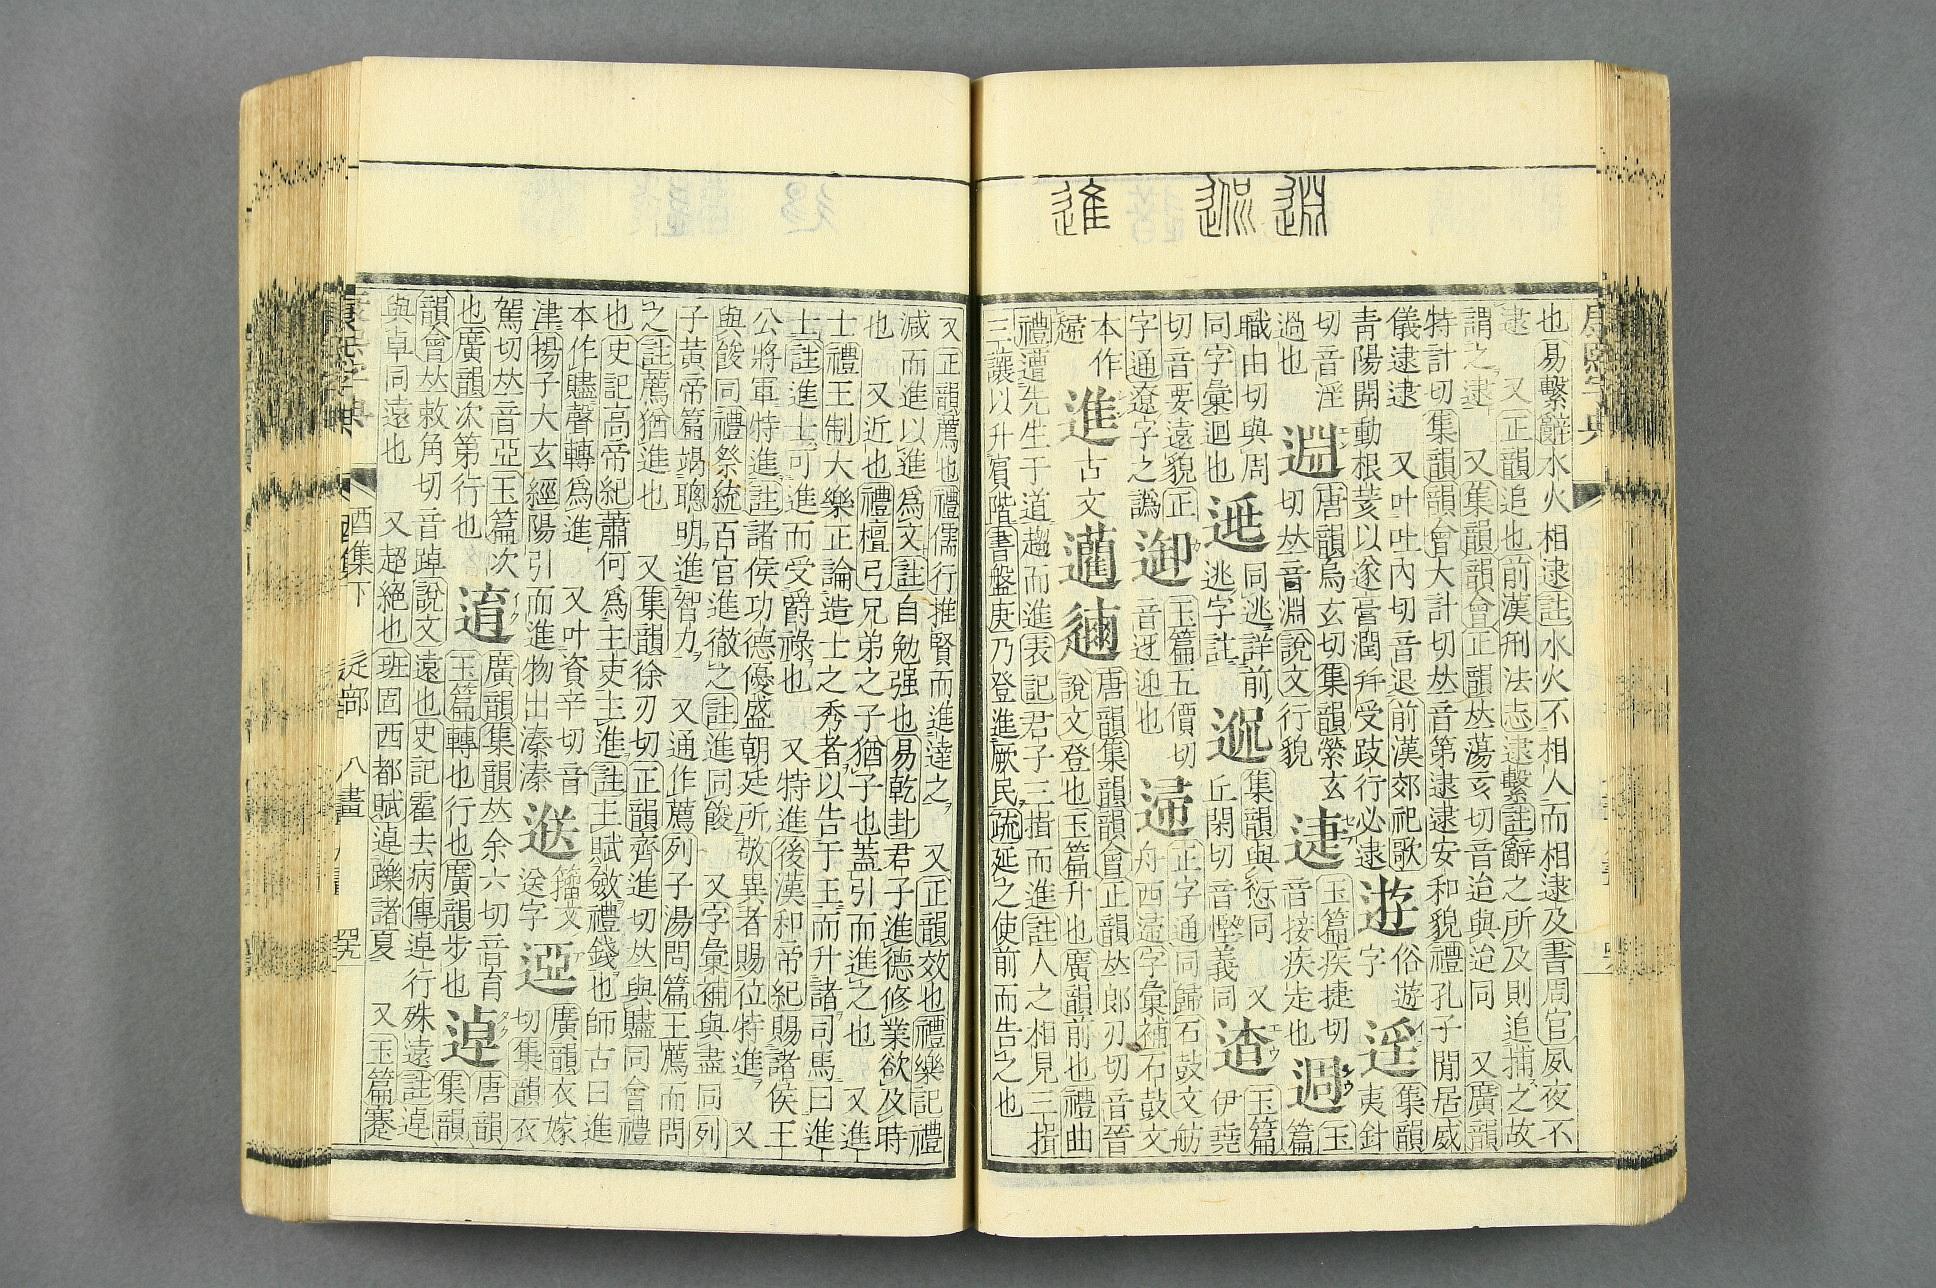 康熙字典
也易繫辭水火相逮註水火不相人而相逮及書周官夙夜不
逮 又正韻追也前漢刑法志逮繫註辭之所及則追捕之故
謂之逮 又集韻韻會正韻𠀤蕩亥切音迨與迨同 又廣韻
特計切集韻韻會大計切𠀤音第逮逮安和貌禮孔子閒居威
儀逮逮 又叶吐內切音退前漢郊祀歌
青陽開動根荄以遂膏潤幷受跂行必逮
逰 俗遊字
婬 集韻夷針切音淫過也
唐韻烏玄切集韻縈玄切𠀤音淵說文行貌
玉篇疾捷切音接疾走也
週 玉篇職由切與周同字彙迴也
同逃詳前 逃字註
集韻與愆同 又丘閑切音慳義同
玉篇伊堯切音要遠貌正字通遼字之譌
玉篇五價切音迓迎也
正字通同歸石鼓文舫舟西逮字彙補石鼓文歸本作
進 古文
唐韻集韻韻會正韻𠀤郎刃切音晉說文登也玉篇升也廣韻前也禮曲
禮遭先生于道趨而進表記君子三揖而進註人之相見三揖
三讓以升賓階書盤庚乃登進厥民疏延之使前而告之也
又正韻薦也禮儒行推賢而進達之 又正韻效也禮樂記禮
減而進以進爲文註自勉强也易乾卦君子進德修業欲及時
也 又近也禮檀弓兄弟之子猶子也蓋引而進之也 又進
士禮王制大樂正論造士之秀者以告于王而升諸司馬曰進
士註進士可進而受爵祿也 又特進後漢和帝紀賜諸侯王
公將軍特進註諸侯功德優盛朝廷所敬異者賜位特進 又
與餕同禮祭統百官進徹之註進同餕 又字彙補與盡同列
子黃帝篇竭聰明進智力 又通作薦列子湯問篇王薦而問
之註薦猶進也 又集韻徐刃切正韻齊進切𠀤與贐同會禮
也史記高帝紀蕭何爲主吏主進註主賦斂禮錢也師古曰進
本作贐聲轉爲進 又叶資辛切音津揚子大玄經陽引而進物出溱溱
籀文送字
廣韻衣嫁切集韻衣駕切𠀤音亞玉篇次也廣韻次第行也
廣韻集韻𠀤余六切音育玉篇轉也行也廣韻步也
逴 唐韻集韻韻會𠀤敕角切音踔說文遠也史記霍去病傳逴行殊遠註逴
與卓同遠也 又超絕也班固西都賦逴躒諸夏 又玉篇蹇
康熙字典 酉集下 辵部 八畫